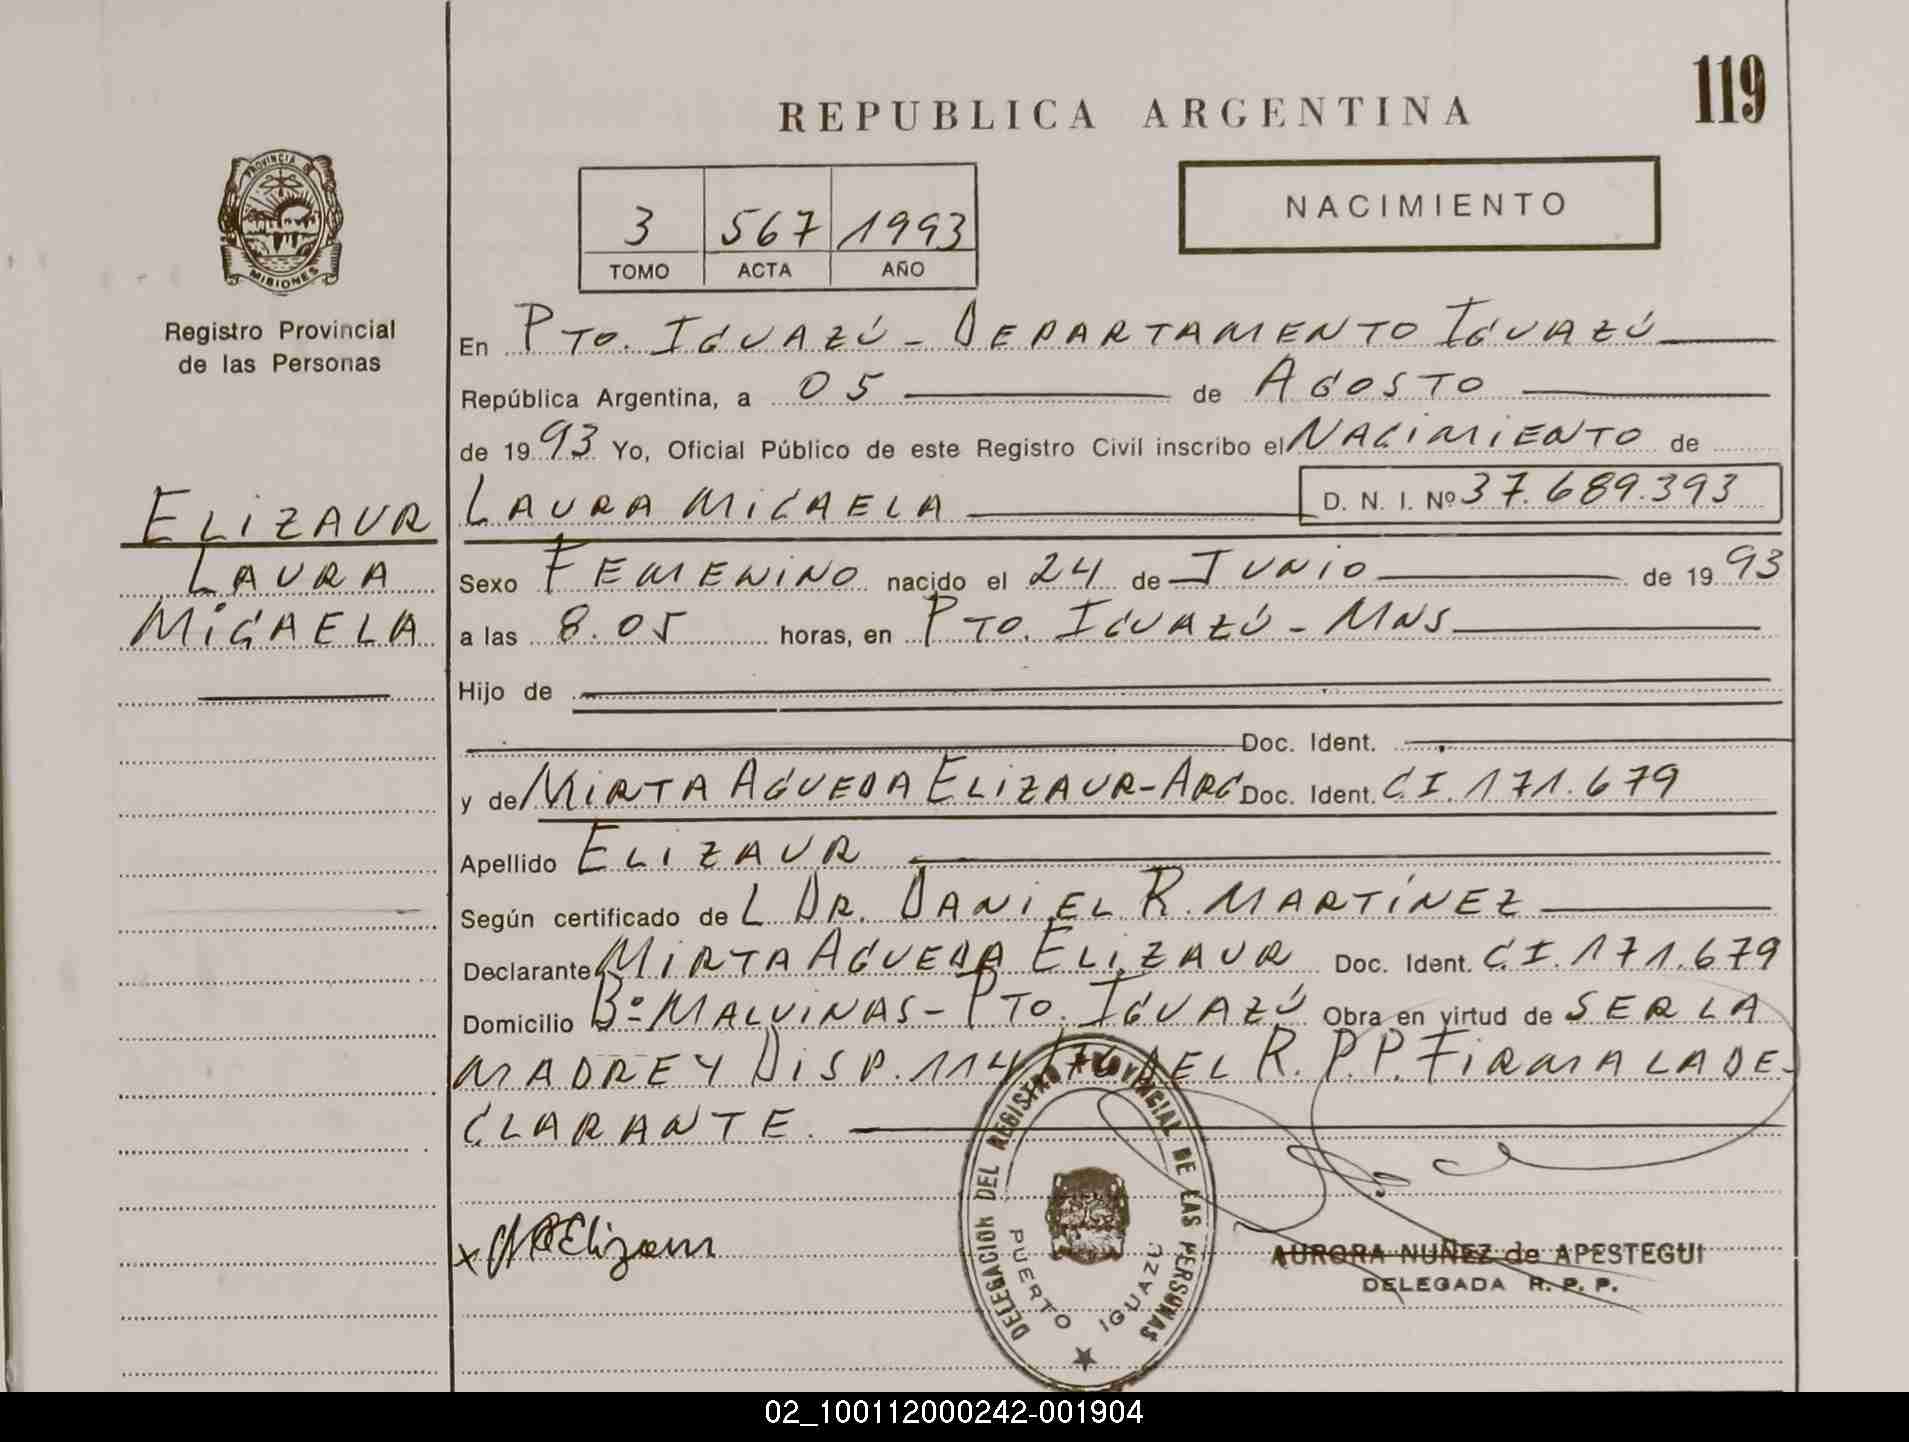 119
REPUBLICA ARGENTINA
PROVINCIA DE
MISIONES
3 567 1993
TOMO ACTA AÑO
NACIMIENTO
Registro Provincial
de las Personas
En PTO. IGUAZÚ - DEPARTAMENTO IGUAZÚ
República Argentina, a 05 de AGOSTO
de 1993 Yo, Oficial Público de este Registro Civil inscribo el NACIMIENTO de
ELIZAUR
LAURA
MICAELA
LAURA MICAELA D. N. I. Nº 37.689.393
Sexo FEMENINO nacido el 24 de JUNIO de 1993
a las 8.05 horas, en PTO. IGUAZÚ - MNS
Hijo de
Doc. Ident.
y de MIRTA AGUEDA ELIZAUR-ARG Doc. Ident. C.I. 171.679
Apellido ELIZAUR
Según certificado de L DR. DANIEL R. MARTÍNEZ
Declarante MIRTA AGUEDA ELIZAUR Doc. Ident. C.I. 171.679
Domicilio Bº MALVINAS - PTO. IGUAZÚ Obra en virtud de SER LA
MADRE Y DISP. 114/76 DEL R.P.P. FIRMA LA DE-
CLARANTE.
DELEGACION DEL REGISTRO PROVINCIAL DE LAS PERSONAS
PUERTO IGUAZU
AURORA NUÑEZ de APESTEGUI
DELEGADA R. P. P.
02_100112000242-001904